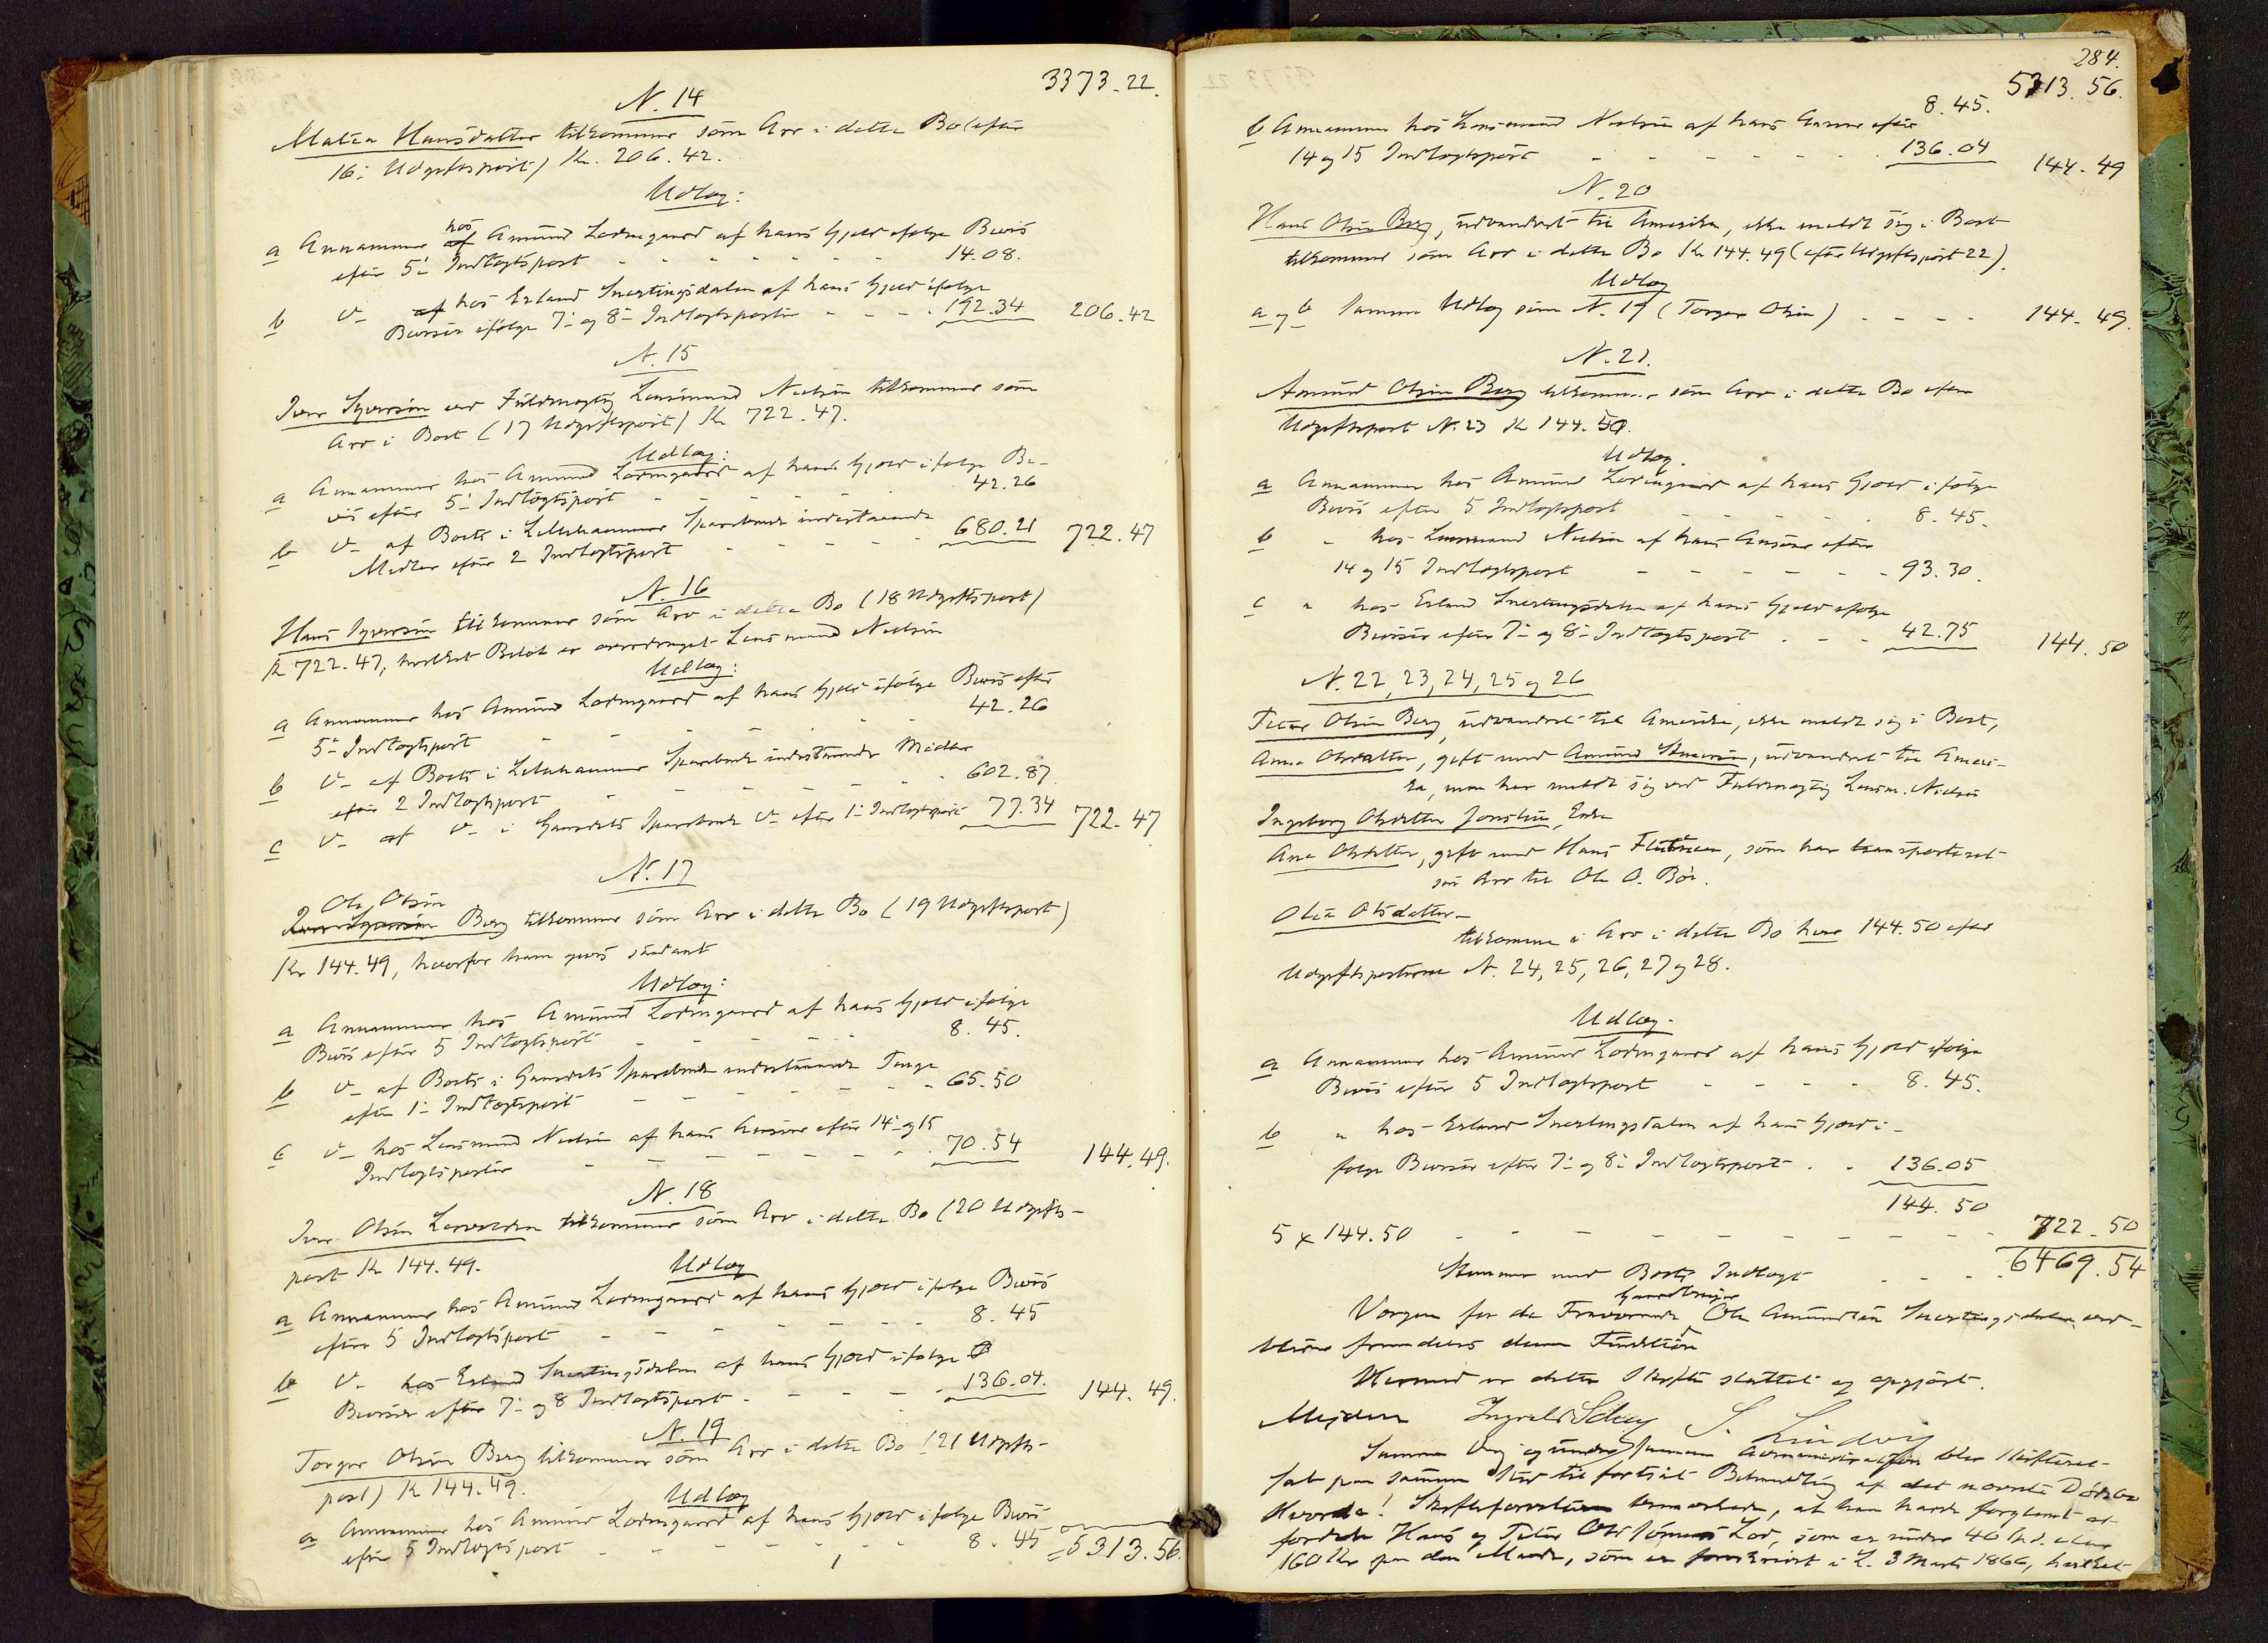 3373.22.
N. 14
Malea Hansdatter tilkommer som Arv i dette Bo (efter
16: Udgiftspost) Kr. 206.42.
Udlæg:
a Annammer hos Amund Lodengaard af hans Gjæld ifølge Bevis
efter 5: Indtægtspost - - - - - - 14.08.
b v- hos Erland Snertingsdalen af hans Gjæld ifølge
Beviser ifølge 7: og 8: Indtægtsposter - - - 192.34 206.42
N. 15
Iver Syversen ved Fuldmægtig Lensmand Nielsen tilkommer som
Arv i Boet (17 Udgiftspost) Kr 722.47.
Udlæg:
a Annammer hos Amund Lodengaard af hans Gjæld ifølge Be-
vis efter 5: Indtægtspost - - - - - 42.26
b v- af Boets i Lillehammer Sparebank indestaaende
Midler efter 2 Indtægtspost - - - - - 680.21 722.47
N. 16
Hans Syversen tilkommer som Arv i dette Bo (18 Udgiftspost)
Kr 722.47, hvilket Beløb er overdraget Lensmand Nielsen
Udlæg:
a Annammer hos Amund Lodengaard af hans Gjæld ifølge Bevis efter
5: Indtægtspost - - - - - 42.26
b v- af Boets i Lillehammer Sparebank indestaaende Midler
efter 2 Indtægtspost - - - - - 602.87.
c v- af v- i Gausdals Sparebank v- efter 1: Indtægtspost 77.34 722.47
N. 17
Ole Olsen
Iver Syversen Berg tilkommer som Arv i dette Bo (19 Udgiftspost)
Kr 144.49, hvorfor ham gives saadant
Udlæg:
a Annammer hos Amund Lodengaard af hans Gjæld ifølge
Bevis efter 5 Indtægtspost - - - - - 8.45.
b v- af Boets i Gausdals Sparebank indestaaende Penge
efter 1: Indtægtspost - - - - - 65.50
c v- hos Lensmand Nielsen af hans Ansvar efter 14: og 15
Indtægtsposter - - - - - 70.54 144.49.
N. 18
Iver Olsen tilkommer som Arv i dette Bo (20 Udgifts-
post Kr 144.49.
Udlæg
a Annammer hos Amund Lodengaard af hans Gjæld ifølge Bevis
efter 5 Indtægtspost - - - - - 8.45
b v- hos Erland Snertingsdalen af hans Gjæld ifølge
Beviser efter 7: og 8 Indtægtspost - - - - 136.04. 144.49.
N. 19
Torger Olsen Berg tilkommer som Arv i dette Bo (21 Udgifts-
post) Kr 144.49.
Udlæg
a Annammer hos Amund Lodengaard af hans Gjæld ifølge Bevis
efter 5 Indtægtspost - - - - - 8.45 5313.56.
284.
5313.56.
b Annammer hos Lensmand Nielsen af hans Ansvar efter 8.45.
14 og 15 Indtægtspost - - - - - 136.04 144.49
N. 20
Hans Olsen Berg, udvandret til Amerika, ikke meldt sig i Boet
tilkommer som Arv i dette Bo Kr 144.49 (efter Udgiftspost 22).
Udlæg
a og b samme Udlæg som N. 19 (Torger Olsen) - - - - 144.49.
N. 21.
Amund Olsen Berg tilkommer som Arv i dette Bo efter
Udgiftspost N. 23 Kr 144.50.
Udlæg.
a Annammer hos Amund Lodengaard af hans Gjæld ifølge
Bevis efter 5 Indtægtspost - - - - - 8.45.
b " hos Lensmand Nielsen af hans Ansvar efter
14 og 15 Indtægtspost - - - - - 93.30.
c " hos Erland Snertingsdalen af hans Gjæld ifølge
Beviser efter 7: og 8: Indtægtspost . - - 42.75 144.50
N. 22, 23, 24, 25 og 26
Peter Olsen Berg, udvandret til Amerika, ikke meldt sig i Boet,
Anne Olsdatter, gift med Amund , udvandret til Ameri-
ka, men har meldt sig ved Fuldmægtig Lensm. Nielsen
Ingeborg Olsdatter , Enke
Ane Olsdatter, gift med Hans , som har transporteret
sin Arv til Ole O. Bøe.
Olea Olsdatter -
tilkommer i Arv i dette Bo hver 144.50 efter
Udgiftsposterne N. 24, 25, 26, 27 og 28.
Udlæg.
a Annammer hos Amund Lodengaard af hans Gjæld ifølge
Bevis efter 5 Indtægtspost - - - - 8.45.
b " hos Erland Snertingsdalen af hans Gjæld i-
følge Beviser efter 7: og 8: Indtægtspost . . 136.05
144.50
5 x 144.50 - - - - - - - 722.50
Stemmer med Boets Indtægt - - - 6469.54
Gaardbruger
Værgen for de Fraværende Ole Amundsen Snertingsdalen ved-
bliver fremdeles denne Funktion
Hermed er dette Skifte sluttet og opgjort.
Ingvald S. Lindvig
Samme Dag og under samme Administration blev Skifteret-
sat paa samme Sted til fortsat Behandling af det nævnte Dødsbo
Hvorda! Skifteforvalteren bemærkede, at han havde forglemt at
fordele Hans og Peter Lod, som er under 40 Spd. eller
160 Kr paa den Maade, som er foreskrevet i L. 3 Marts 1866, hvilket